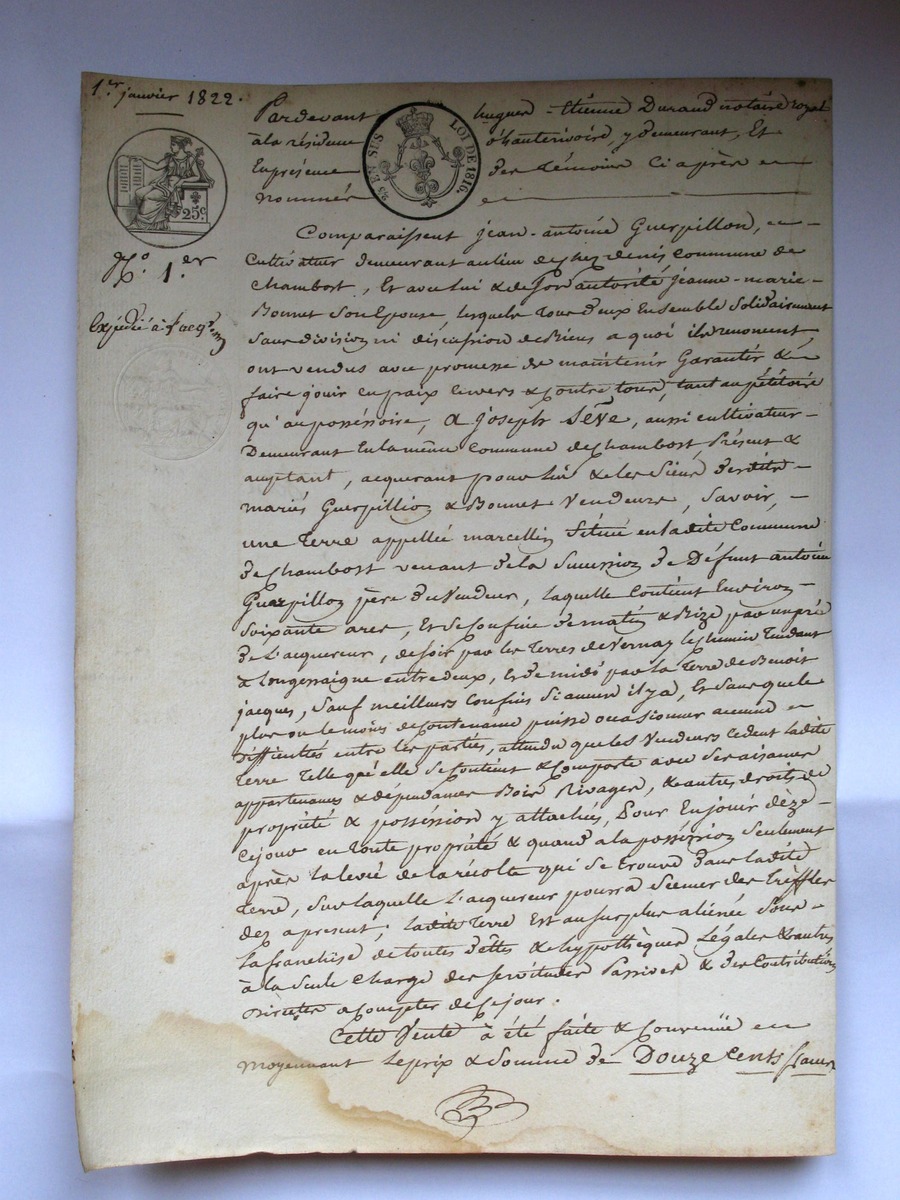 1.er janvier 1822.
Pardevant hugues-Etienne Durand notaire royal
à la résidence d'hauterivoire, y demeurant, Et
En présence des témoins ci après
nommés
25 EN SUS
LOI DE 1816.
25c.
N.o 1.er
Expédié à l'acq.
Comparaissent jean-antoine Guerpillon,
Cultivateur demeurant au lieu de chez denis Commune de
Chambost, Et avec lui & de son autorité jeanne-marie-
Bonnet Son Epouse lesquels tous deux Ensemble Solidairement
Sans division ni discussion de Biens a quoi ils renoncent,
ont vendus avec promesse de maintenir Garantir &
faire jouir en paix Envers & Contre tous, tant au pétitoire
qu'au posséssoire, A joseph Séve, aussi cultivateur-
Demeurant En la même Commune de Chambost Présent &
aceptant, acquerant pour lui & les Siens desdits-
mariés Guerpillion & Bonnet Vendeurs, Savoir,-
une Terre appellée marcellin Située en ladite Commune
de Chambost venant de la Succession de Défunt antoine
Guerpillon père du Vendeur, laquelle Contient Environ-
Soixante ares, Et Se Confine de matin & Bize par un pré
de L'acquereur, de Soir par les Terres de Vernay le Chemin Tendant
à Longessaigne entre deux, Et de midi par la Terre de Benoit
jacques, Sauf meilleurs Confins Si aucun il y a, Et Sans que le
plus ou le moins de Contenance puisse occasionner aucune
difficultés entre les parties, attendu que les Vendeurs Cedent ladite
Terre Telle qu'elle Se Contient & Comporte avec Ses aisances
appartenances & dépendances Bois Rivages, & autres droits de
propriété & posséssion y attachés, Pour En jouir dèz Ce-
Cejour en toute propriété & quand a la posséssion Seulement
après la levée de la récolte qui Se trouve dans ladite
Terre, Sur laquelle L'acquereur pourra Semer des Trèffles
dez apresent; ladite Terre Est au Surplus aliénée Sous-
la franchise de toutes dêttes & hypothèques Légales & autres
à la Seule Charge des Servitudes Passives & des Contributions
Directes a Compter de Ce jour.
Cette Vente à été faite & Convenüe
moyennant Le prix & Somme de Douze Cents francs